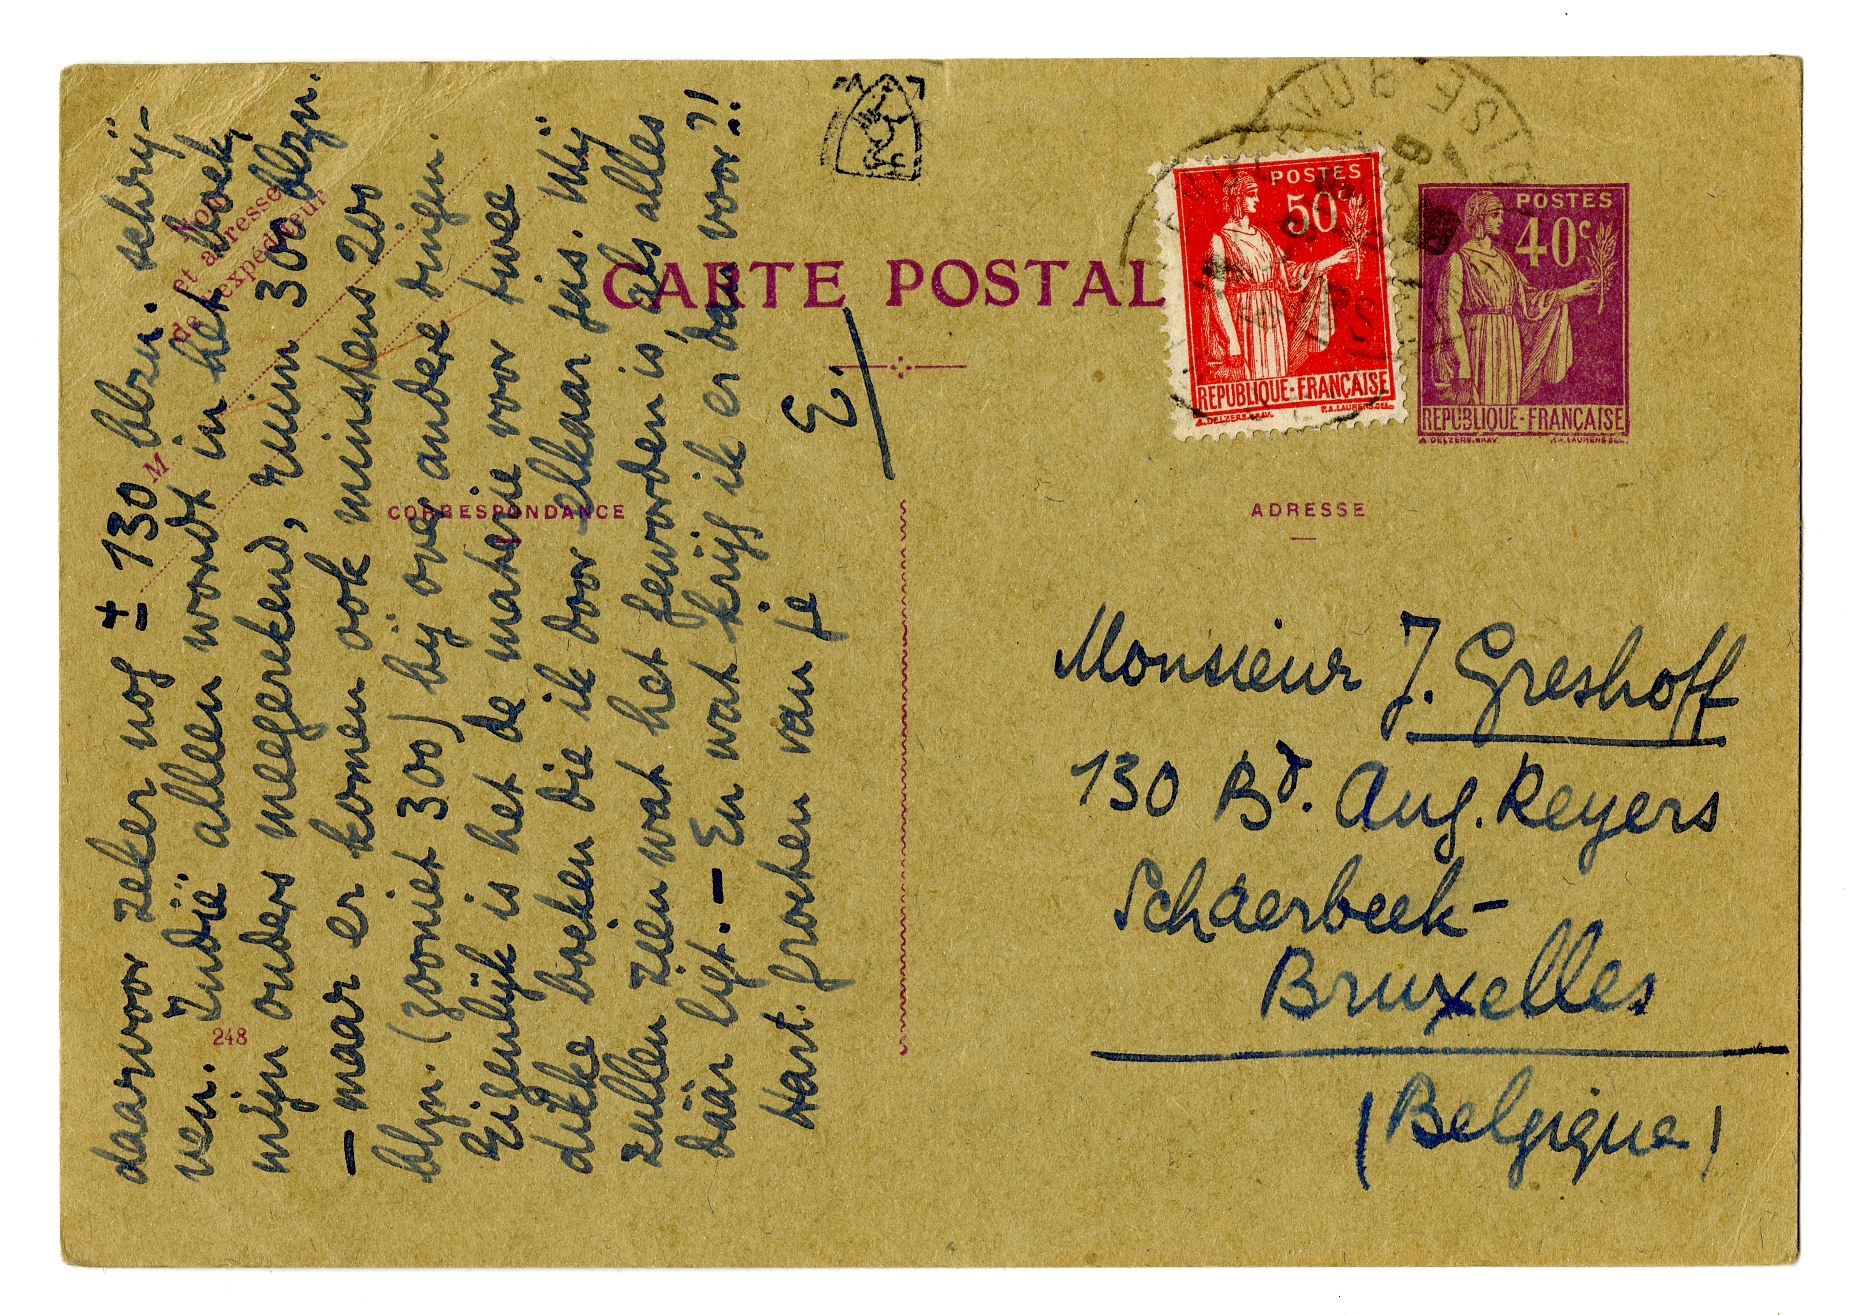 CARTE POSTALE
Nom
et adresse
de l'expéditeur
M
CORRESPONDANCE
ADRESSE
248
POSTES
50c
REPUBLIQUE·FRANÇAISE
A.DELZERS.GRAV. P.A.LAURENS.DEL.
POSTES
40c
REPUBLIQUE·FRANÇAISE
A.DELZERS.GRAV. P.A.LAURENS.DEL.
daarvoor zeker nog ± 130 blzn. schrij-
ven. Indië alleen wordt in het boek,
mijn ouders meegerekend, ruim 300 blzn.
— maar er komen ook minstens 200
blzn. (zooniet 300) bij over andere dingen.
Eigenlijk is het de materie voor twee
dikke boeken die ik door elkaar jas. Wij
zullen zien wat het geworden is, als alles
dáár ligt. — En wat krijg ik er dan voor?!
Hart. groeten van je
E.
Monsieur J. Greshoff
130 Bd. Aug. Reyers
Schaerbeek-
Bruxelles
(Belgique)